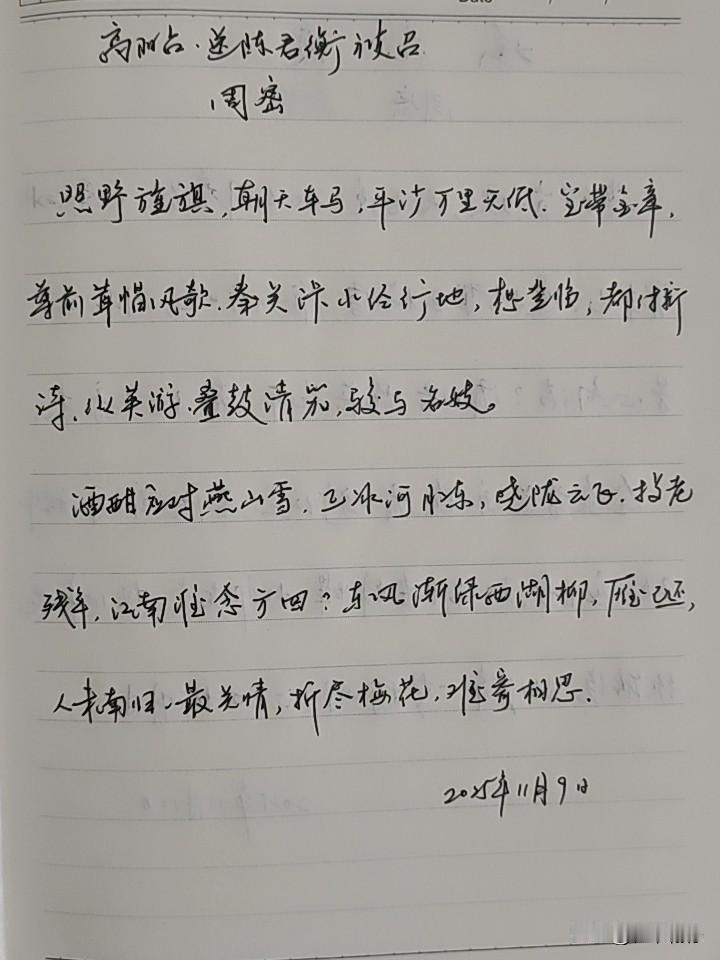 Date
高阳台·送陈君衡被召
周密
照野旌旗,朝天车马,平沙万里天低.宝带金章,
尊前茸帽风欹.秦关汴水经行地,想登临,都付新
诗.纵英游.叠鼓清笳,骏马名妓。
酒酣应对燕山雪.正冰河月冻,晓陇云飞.投老
残年,江南谁念方回?东风渐绿西湖柳,雁已还,
人未南归.最关情,折尽梅花,难寄相思.
2025年11月9日